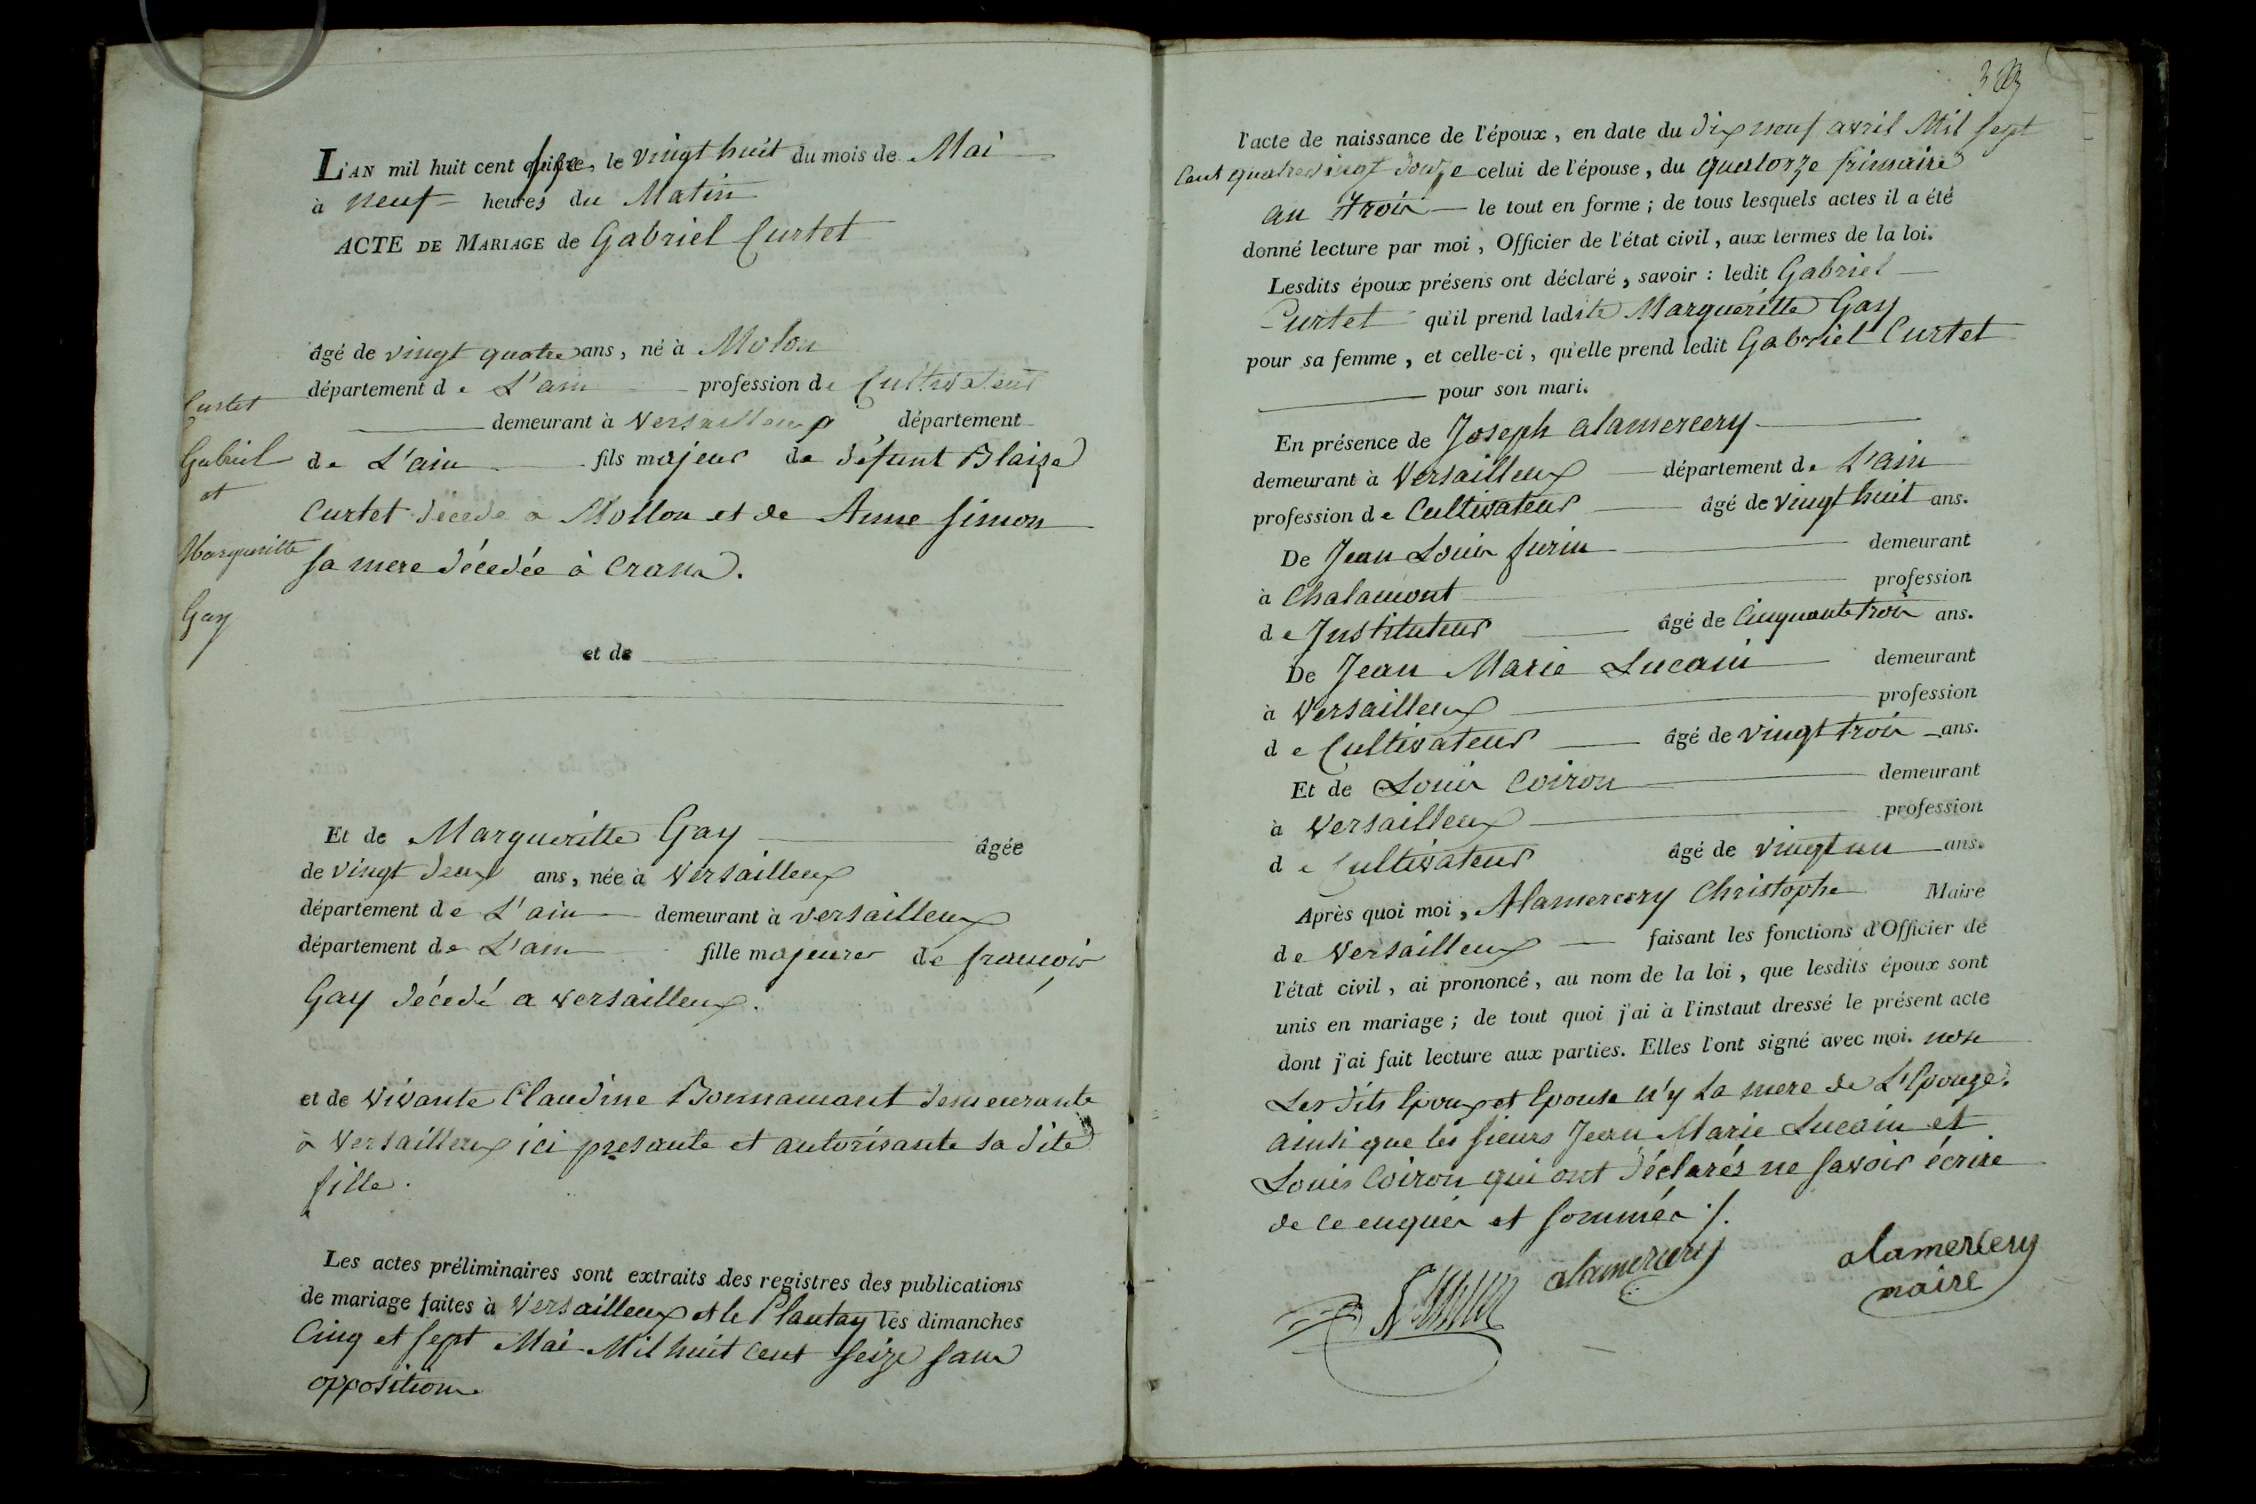 L'AN mil huit cent seize, le vingt huit du mois de Mai
à neuf heures du Matin
ACTE DE MARIAGE de Gabriel Curtet
âgé de vingt quatre ans, né à Molon
département de L'ain profession de Cultivateur
demeurant à Versailleux département
de L'ain fils majeur de défunt Blaize
Curtet décédé a Mollon et de Anne Simon
sa mere décedée à Crans.
et de
Curtet
Gabriel
et
Margueritte
Gay
Et de Margueritte Gay âgée
de vingt deux ans, née à Versailleux
département de L'ain demeurant à versailleux
département de L'ain fille majeure de françois
Gay décedé a versailleux.
et de vivante Claudine Bonnamant demeurante
à Versailleux ici presante et autorisante sa dite
fille.
Les actes préliminaires sont extraits des registres des publications
de mariage faites à Versailleux et le Plantay les dimanches
Cinq et sept Mai Mil huit Cent seize sans
opposition
l'acte de naissance de l'époux, en date du dix neuf avril Mil sept
Cent quatre vingt douze celui de l'épouse, du quatorze frimaire
an trois le tout en forme ; de tous lesquels actes il a été
donné lecture par moi, Officier de l'état civil, aux termes de la loi.
Lesdits époux présens ont déclaré, savoir : ledit Gabriel
Curtet qu'il prend ladite Margueritte Gay
pour sa femme, et celle-ci, qu'elle prend ledit Gabriel Curtet
pour son mari.
En présence de Joseph alamercery
demeurant à Versailleux département de L'ain
profession de Cultivateur âgé de vingt huit ans.
De Jean Louis surin demeurant
à Chalamont profession
de Instituteur âgé de Cinquante trois ans.
De Jean Marie Lucain demeurant
à Versailleux profession
de Cultivateur âgé de vingt trois ans.
Et de Louis Coiron demeurant
à Versailleux profession
de Cultivateur âgé de vingt un ans.
Après quoi moi, Alamercery Christophe Maire
de Versailleux faisant les fonctions d'Officier de
l'état civil, ai prononcé, au nom de la loi, que lesdits époux sont
unis en mariage ; de tout quoi j'ai à l'instaut dressé le présent acte
dont j'ai fait lecture aux parties. Elles l'ont signé avec moi. non
Les dits Epoux et Epouse n'y La mere de L'Epouze.
ainsi que les sieurs Jean Marie Lucain et
Louis Coiron qui ont déclarés ne savoir écrire
de ce enquis et sommés
alamercery
alamercery
maire